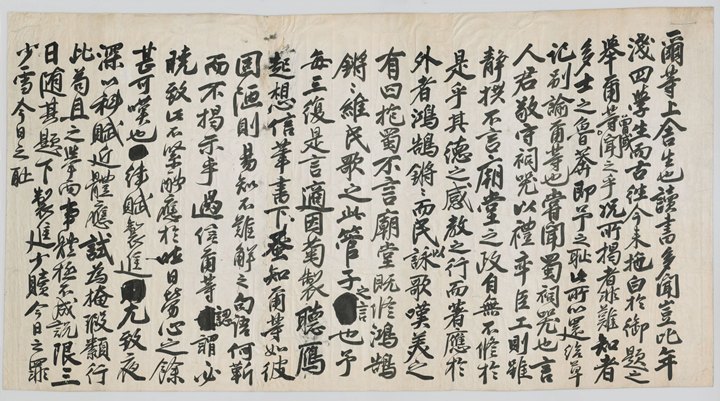 爾等上舍生也讀書多聞豈比年
淺四學生而古往今未抱曰於御題之
舉爾等曾聞之乎況所揭者非難知者
多士之魯莽即予之恥此所以還給單
記別諭爾等也嘗聞蜀祠咒也言
人君敬守祠咒以禮率臣工則雖
静拱不言廟堂之政自無不修於
是乎其德之感教之行而著應於
外者鴻鵠鏘鏘而民以詠歌嘆美之
有曰抱蜀不言廟堂既修鴻鵠
鏘鏘維民歌之此管子之言也予
每三復是言適因菊製聽鴈
起想信筆書下蚤知爾等如彼
固陋則易知不難解之句語何靳
而不揭示乎過信爾等認謂必
曉致此不緊酬應於昨日勞心之餘
甚可嘆也律賦製進尤致夜
深以科賦近體應試為掩瑕纇行
此苟且之擧而事體極不成說限三
日随其題下製進少贖今日之罪
少雪今日之恥